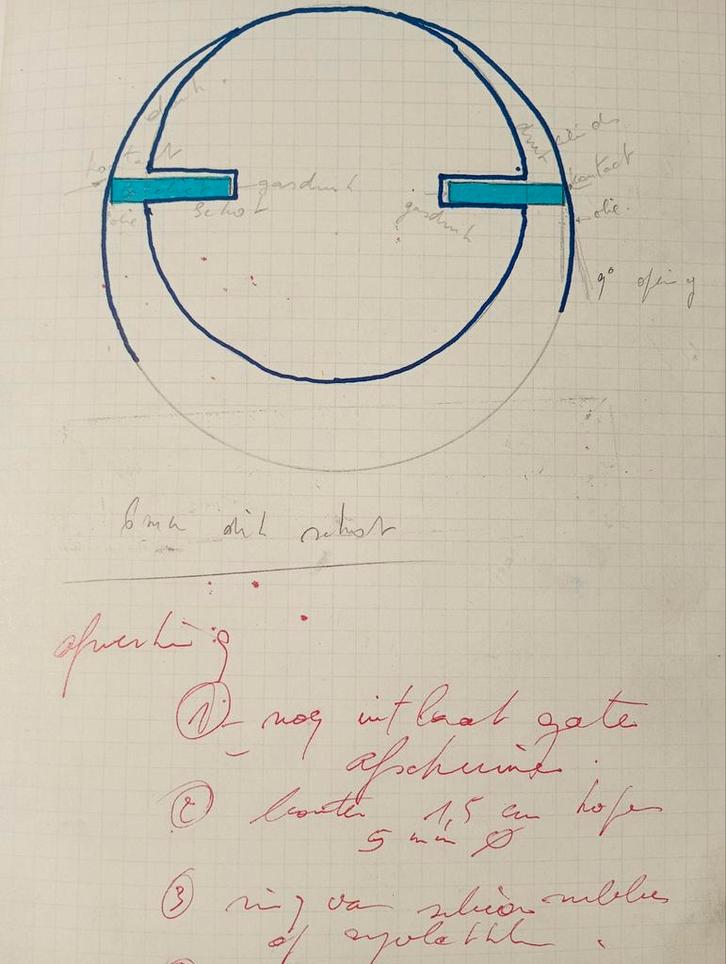 druk
kontact
gasdruk
schot
olie
druk
kontact
gasdruk
olie.
9° opening
6 mm dik schot
afwerking
① nog uitlaat gaten
afschuinen.
② 1,5 cm hoger
5 mm Ø
③ ring van silicon rubber
of